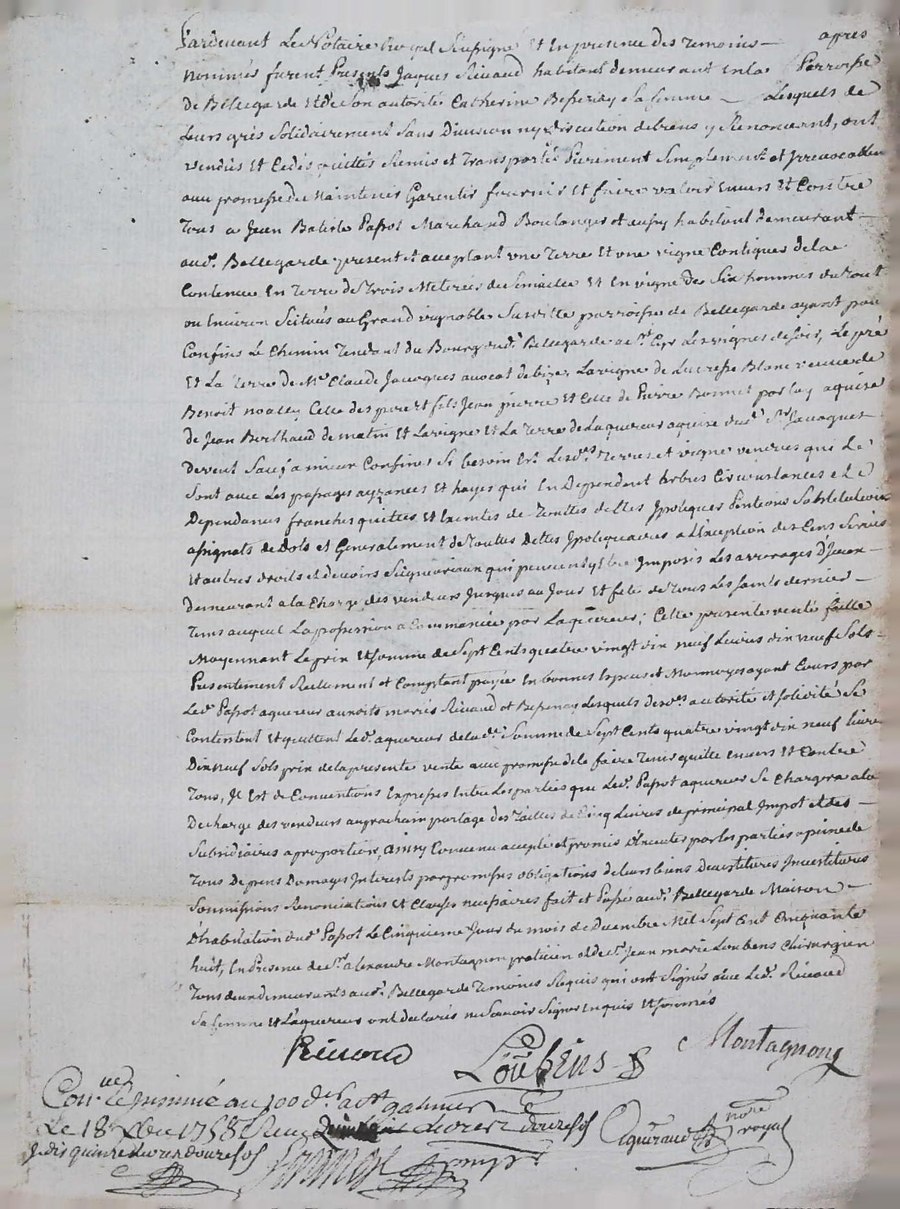 Pardevant Le Notaire Royal Soussigné Et En presence des Temoins – apres
nommés furent Presents Jaques Rivaud habitant demeurant en la Parroisse
de Bellegarde Et de Son autorité Catherine Besseney Sa femme – Lesquels de
Leurs grés Solidairement Sans Division ny Discution de biens y Renoncent, ont
vendus Et Cedés quittés Remis et Transportés Purement Simplement et Irrevocablem
avec promesse de Maintenir Garentir fournir Et faire valoir Envers Et Contre
Tous a Jean Batiste Papot Marchand Boulanger et aussy habitant demeurant –
aud. Bellegarde present et acceptant une Terre Et une vigne Contigues de la
Contenue En Terre de Trois Meterées de Et En vigne de Six hommes du Tout
ou Environ Scitués au Grand vignoble Susditte parroisse de Bellegarde ayant pour
Confins Le Chemin Tendant du Bourg dud. Bellegarde a St. Cyr Les vignes de Soir, Le pré
Et La Terre de Me Claude Jacoques avocat de bize, La vigne de Blanc veuve de
Benoit Celle des pere et fils Jean pierre Et Celle de Pierre Bonnet par luy aquise
de Jean Berthaud de matin Et La vigne Et La Terre de Laquereur aquise dud. Sr. Jacoques
devent Sauf a mieux Confiner Si besoin Est Lesd.es Terres et vigne vendues qui Le
Sont avec Les passages ayzances Et hayes qui En Dependent Arbres Circonstances et
Dependances franches quittes Et Exemtes de Touttes dettes Ipoteques Pentions Substitutions
assignats de Dots et Generalement de Touttes Dettes Ipotequaires a L'exception des Cens Servis
Et autres droits et devoirs Seigneuriaux qui peuvent y Etre Imposés Les arrerages D'yceux –
demeurant a la Charge des vendeurs Jusques au Jour Et fete de Tous Les Saints dernier –
Tems auquel La possession a Commancée pour Laquereur; Cette presente vente faitte
Moyennant Le prix Et Somme de Sept Cents quatre vingt dix neuf Livres dix neuf Sols –
Presentement Reellement et Comptant payée En bonnes Especes et Monnoyes ayant Cours par
Led. Papot aquereur auxdits mariés Rivaud et Besseney Lesquels desd.es autorité et Solidité Se
Contentent Et quittent Led. aquereur de lad.e Somme de Sept Cents quatre vingt dix neuf livre
Dix neuf Sols prix de la presente vente avec promesse de le faire Tenir quitte envers Et Contre
Tous, Il Est de Conventions Expresses Entre Les parties que Led. Papot aquereur Se Chargera a la
Decharge des vendeurs au prochain partage des Tailles de Cinq Livres de principal Impot et des –
Subsidiaires a proportion, ainsy Convenu accepté et promis D'Executer par les parties a peine de
Tous Depens Domages Interests par promesses obligations de leurs biens Devetitures Investitures
Soumissions Renonciations Et Clauses necessaires fait et Passé aud. Bellegarde Maison –
D'habitation dud. Papot Le Cinquieme Jour du mois de Decembre Mil Sept Cent Cinquante
huit, En Presence de Sr. Alexandre Montagnon praticien et de Sr. Jean marie Loubens Chirurgien
Tous deux demeurants aud. Bellegarde Temoins Requis qui ont Signés avec Led. Rivaud
Sa femme Et Laquereur ont declarés ne Scavoir Signer Enquis Et Sommés
Rivaud
Loubens
Montagnon
au 100.e d.
Le 18 Xbre 1758 Reçu Livres douze sols
quinze Livres douze sols
notre royal